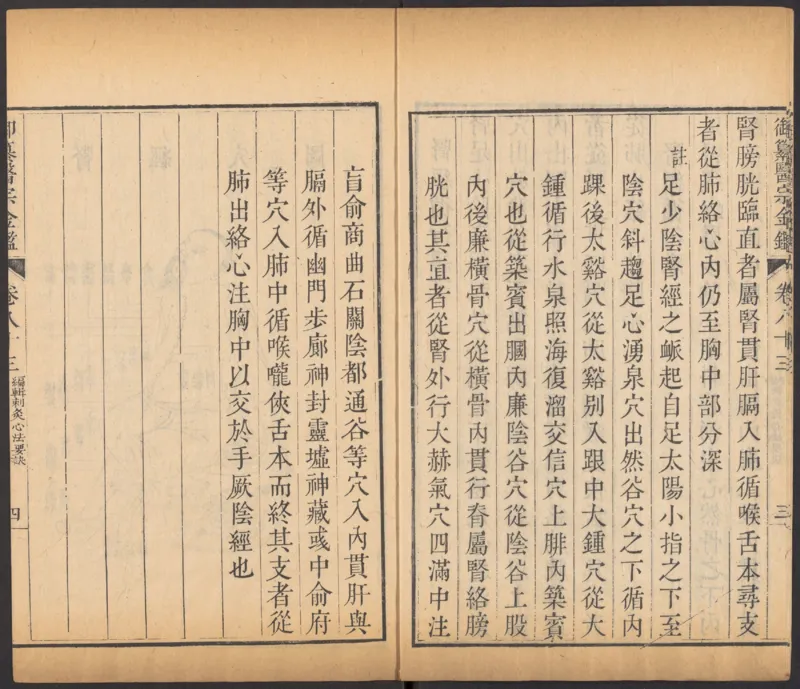 御纂醫宗金鑑
卷八十三
三
腎膀胱臨直者屬腎貫肝膈入肺循喉舌本尋支
者從肺絡心內仍至胸中部分深
註
足少陰腎經之脈起自足太陽小指之下至
陰穴斜趨足心湧泉穴出然谷穴之下循內
踝後太谿穴從太谿別入跟中大鍾穴從大
鍾循行水泉照海復溜交信穴上腓內築賓
穴也從築賓出膕內廉陰谷穴從陰谷上股
內後廉橫骨穴從橫骨內貫行脊屬腎絡膀
胱也其直者從腎外行大赫氣穴四滿中注
肓俞商曲石關陰都通谷等穴入內貫肝與
膈外循幽門步廊神封靈墟神藏彧中俞府
等穴入肺中循喉嚨俠舌本而終其支者從
肺出絡心注胸中以交於手厥陰經也
御纂醫宗金鑑
卷八十三
編輯刺灸心法要訣
四